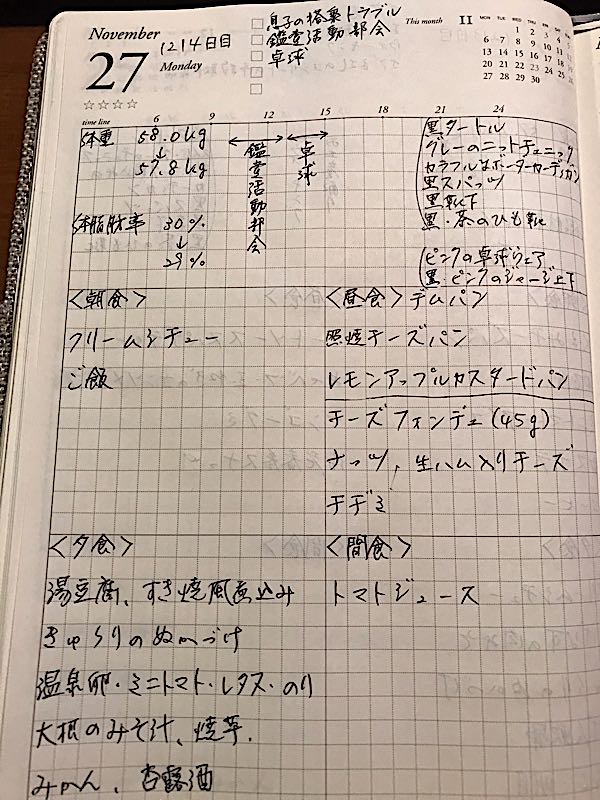 November
27
Monday
1214日目
☆☆☆☆
息子の搭乗トラブル
鑑堂活動部会
卓球
This month 11
MON TUE WED THU FRI SAT SUN
1 2 3 4 5
6 7 8 9 10 11 12
13 14 15 16 17 18 19
20 21 22 23 24 25 26
27 28 29 30
time line 6 9 12 15 18 21 24
体重 58.0kg
↓
57.8kg
体脂肪率 30%
↓
29%
鑑堂活動部会
卓球
黒タートル
グレーのニットチュニック
カラフルなボーターカーディガン
黒スパッツ
黒靴下
黒・茶のひも靴
ピンクの卓球ウェア
黒・ピンクのジャージ上下
<朝食>
クリームシチュー
ご飯
<昼食> デムパン
照焼チーズパン
レモンアップルカスタードパン
チーズフォンデュ(45g)
ナッツ、生ハム入りチーズ
チヂミ
<夕食>
湯豆腐、すき焼風煮込み
きゅうりのぬかづけ
温泉卵・ミニトマト・レタス・のり
大根のみそ汁、焼芋、
みかん、杏露酒
<間食>
トマトジュース